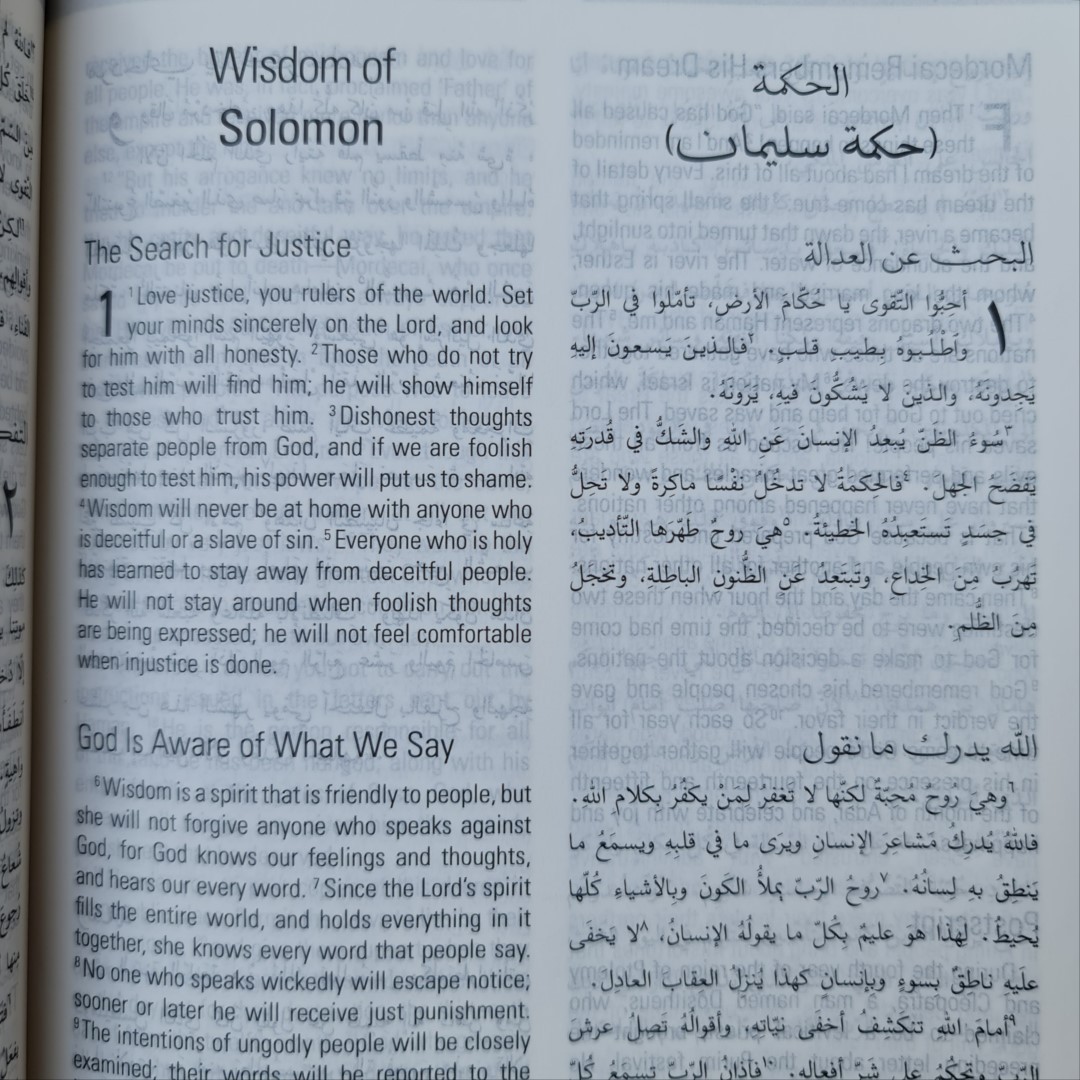 Wisdom of
Solomon
The Search for Justice
1 ¹Love justice, you rulers of the world. Set
your minds sincerely on the Lord, and look
for him with all honesty. ²Those who do not try
to test him will find him; he will show himself
to those who trust him. ³Dishonest thoughts
separate people from God, and if we are foolish
enough to test him, his power will put us to shame.
⁴Wisdom will never be at home with anyone who
is deceitful or a slave of sin. ⁵Everyone who is holy
has learned to stay away from deceitful people.
He will not stay around when foolish thoughts
are being expressed; he will not feel comfortable
when injustice is done.
God Is Aware of What We Say
⁶Wisdom is a spirit that is friendly to people, but
she will not forgive anyone who speaks against
God, for God knows our feelings and thoughts,
and hears our every word. ⁷Since the Lord's spirit
fills the entire world, and holds everything in it
together, she knows every word that people say.
⁸No one who speaks wickedly will escape notice;
sooner or later he will receive just punishment.
⁹The intentions of ungodly people will be closely
examined; their words will be reported to the
الحكمة
(حكمة سليمان)
البحث عن العدالة
١ أَحِبُّوا التَّقوى يا حُكَّامَ الأرضِ، تأمَّلوا في الرّبِّ
وأَطلُبوهُ بِطيبِ قلبٍ. ٢فالذينَ يَسعونَ إليهِ
يَجِدونَهُ، والذينَ لا يَشُكُّونَ فيهِ، يَرَونَهُ.
٣سُوءُ الظَّنِّ يُبعِدُ الإنسانَ عَنِ اللهِ والشَّكُّ في قُدرَتِهِ
يَفضَحُ الجهلَ. ٤فالحِكمَةُ لا تَدخُلُ نَفْسًا ماكِرةً ولا تَحِلُّ
في جسَدٍ تَستَعبِدُهُ الخَطيئةُ. ٥هيَ روحٌ طهَّرَها التَّأديبُ،
تَهرُبُ مِنَ الخداعِ، وتَبتَعِدُ عَنِ الظُّنونِ الباطِلَةِ، وتَخجَلُ
مِن الظُّلمِ.
الله يدرك ما نقول
٦وهيَ روحٌ مُحِبَّةٌ لكنَّها لا تَغفِرُ لِمَنْ يَكْفُرُ بِكلامِ اللهِ.
فاللهُ يُدرِكُ مَشاعِرَ الإنسانِ ويَرَى ما في قلبِهِ ويسمَعُ ما
يَنطِقُ بهِ لِسانُهُ. ٧روحُ الرّبِّ يَملأُ الكَونَ وبالأشياءِ كُلِّها
يُحيطُ. لِهذا هوَ عليمٌ بِكلِّ ما يقولُهُ الإنسانُ، ٨لا يَخفَى
علَيهِ ناطِقٌ بسوءٍ وبإنسانٍ كهذا يُنزِلُ العِقابَ العادِلَ.
٩أمامَ اللهِ تنكَشِفُ أخفَى نيّاتِهِ، وأقوالُهُ تَصِلُ عرشَ
الرّبِّ وتَحكُمُ على شَرِّ أفعالِهِ. ١٠فآذانُ الرّبِّ تَسمَعُ كُلَّ